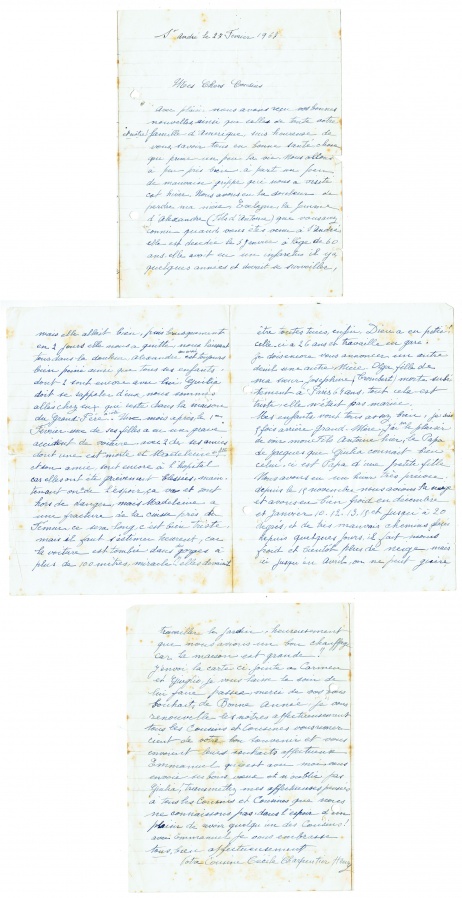 St André le 23 Fevrier 1968
Mes Chers Cousins
Avec plaisir nous avons reçu vos bonnes
nouvelles ainsi que celles de toute votre
famille d'Amérique suis heureuse de
vous savoir tous en bonne santé chose
que prime un peu la vie Nous allons
à peu près bien à part un peu
de mauvaise grippe que nous a visité
cet hiver Nous avons eu la douleur de
perdre ma nièce Eulalie la femme
d'Alexandre (fils d'Antoine) que vous avez
connu quand vous êtes venu à St André
elle est décédée le 5 janvier à l'âge de 60
ans elle avait eu un infarctus il y a
quelques années et devait se surveiller,
mais elle allait bien, puis brusquement
en 2 jours elle nous a quitté nous laissant
tous dans la douleur Alexandre est toujours
bien peiné ainsi que tous ses enfants
dont 2 sont encore avec lui Giulia
doit se rappeler d'eux nous sommes
allés chez eux qui est dans la maison
du Grand Père
Fevrier une de ses filles a eu une grave
accident de voiture avec 2 de ses amies
dont une est morte et Madeleine
et son amie sont encore à l'hopital
car elles ont été grièvement blessées, main
tenant on de l'espoir ça va et sont
hors de danger, mais Madeleine a
une fracture à la cuisse près de
ce sera long, c'est bien triste
mais il faut s'estimer heureux, car
la voiture est tombée dans
plus de 100 mètres, miracle elles devaient
être toutes tuées, enfin Dieu a eu pitié
celle ci a 26 ans et travaille en gare:
je dois encore vous annoncer un autre
deuil une autre Nièce Olga fille de
ma sœur Joséphine morte subi
tement à Paris ans, tout cela est
triste elle n'était pas mariée
Mes enfants vont tous assez bien, je suis
5 fois arrière Grand-Mère, j'ai le plaisir
de voir mon Antoine hier, le Papa
de Jacques que Giulia connait bien
celui ci est Papa d'une petite fille
Nous avons eu un hiver très précoce
depuis le 18 novembre nous avons la neige
et avons eu bien froid en décembre
et janvier 10.12.13.18 et jusqu'à 20
degrés, et de très mauvais chemins
depuis quelques jours il fait moins
froid et bientôt plus de neige mais
ici jusqu'en Avril on ne peut guère
travailler le jardin, heureusement
que nous avons un bon chauffage
car la maison est grande!
J'envoi la carte ci jointe à Carmen
et Giulio, je vous laisse le soin de
lui faire passer merci de vos bons
souhaits de Bonne Année je vous
renouvelle les nôtres affectueusement
tous les Cousins et Cousines vous remer
cient de votre bon souvenir et vous
envoient leurs souhaits affectueux
Emmanuel qui est avec moi vous
envoie ses bons vœux et n'oublie pas
Giulia, transmettez mes affectueuses pensées
à tous les Cousins et Cousines que nous
ne connaissons pas dans l'espoir d'un
plaisir de revoir quelqu'un des Cousins!
avec Emmanuel je vous embrasse
tous bien affectueusement
Votre Cousine Cécile Charpentier